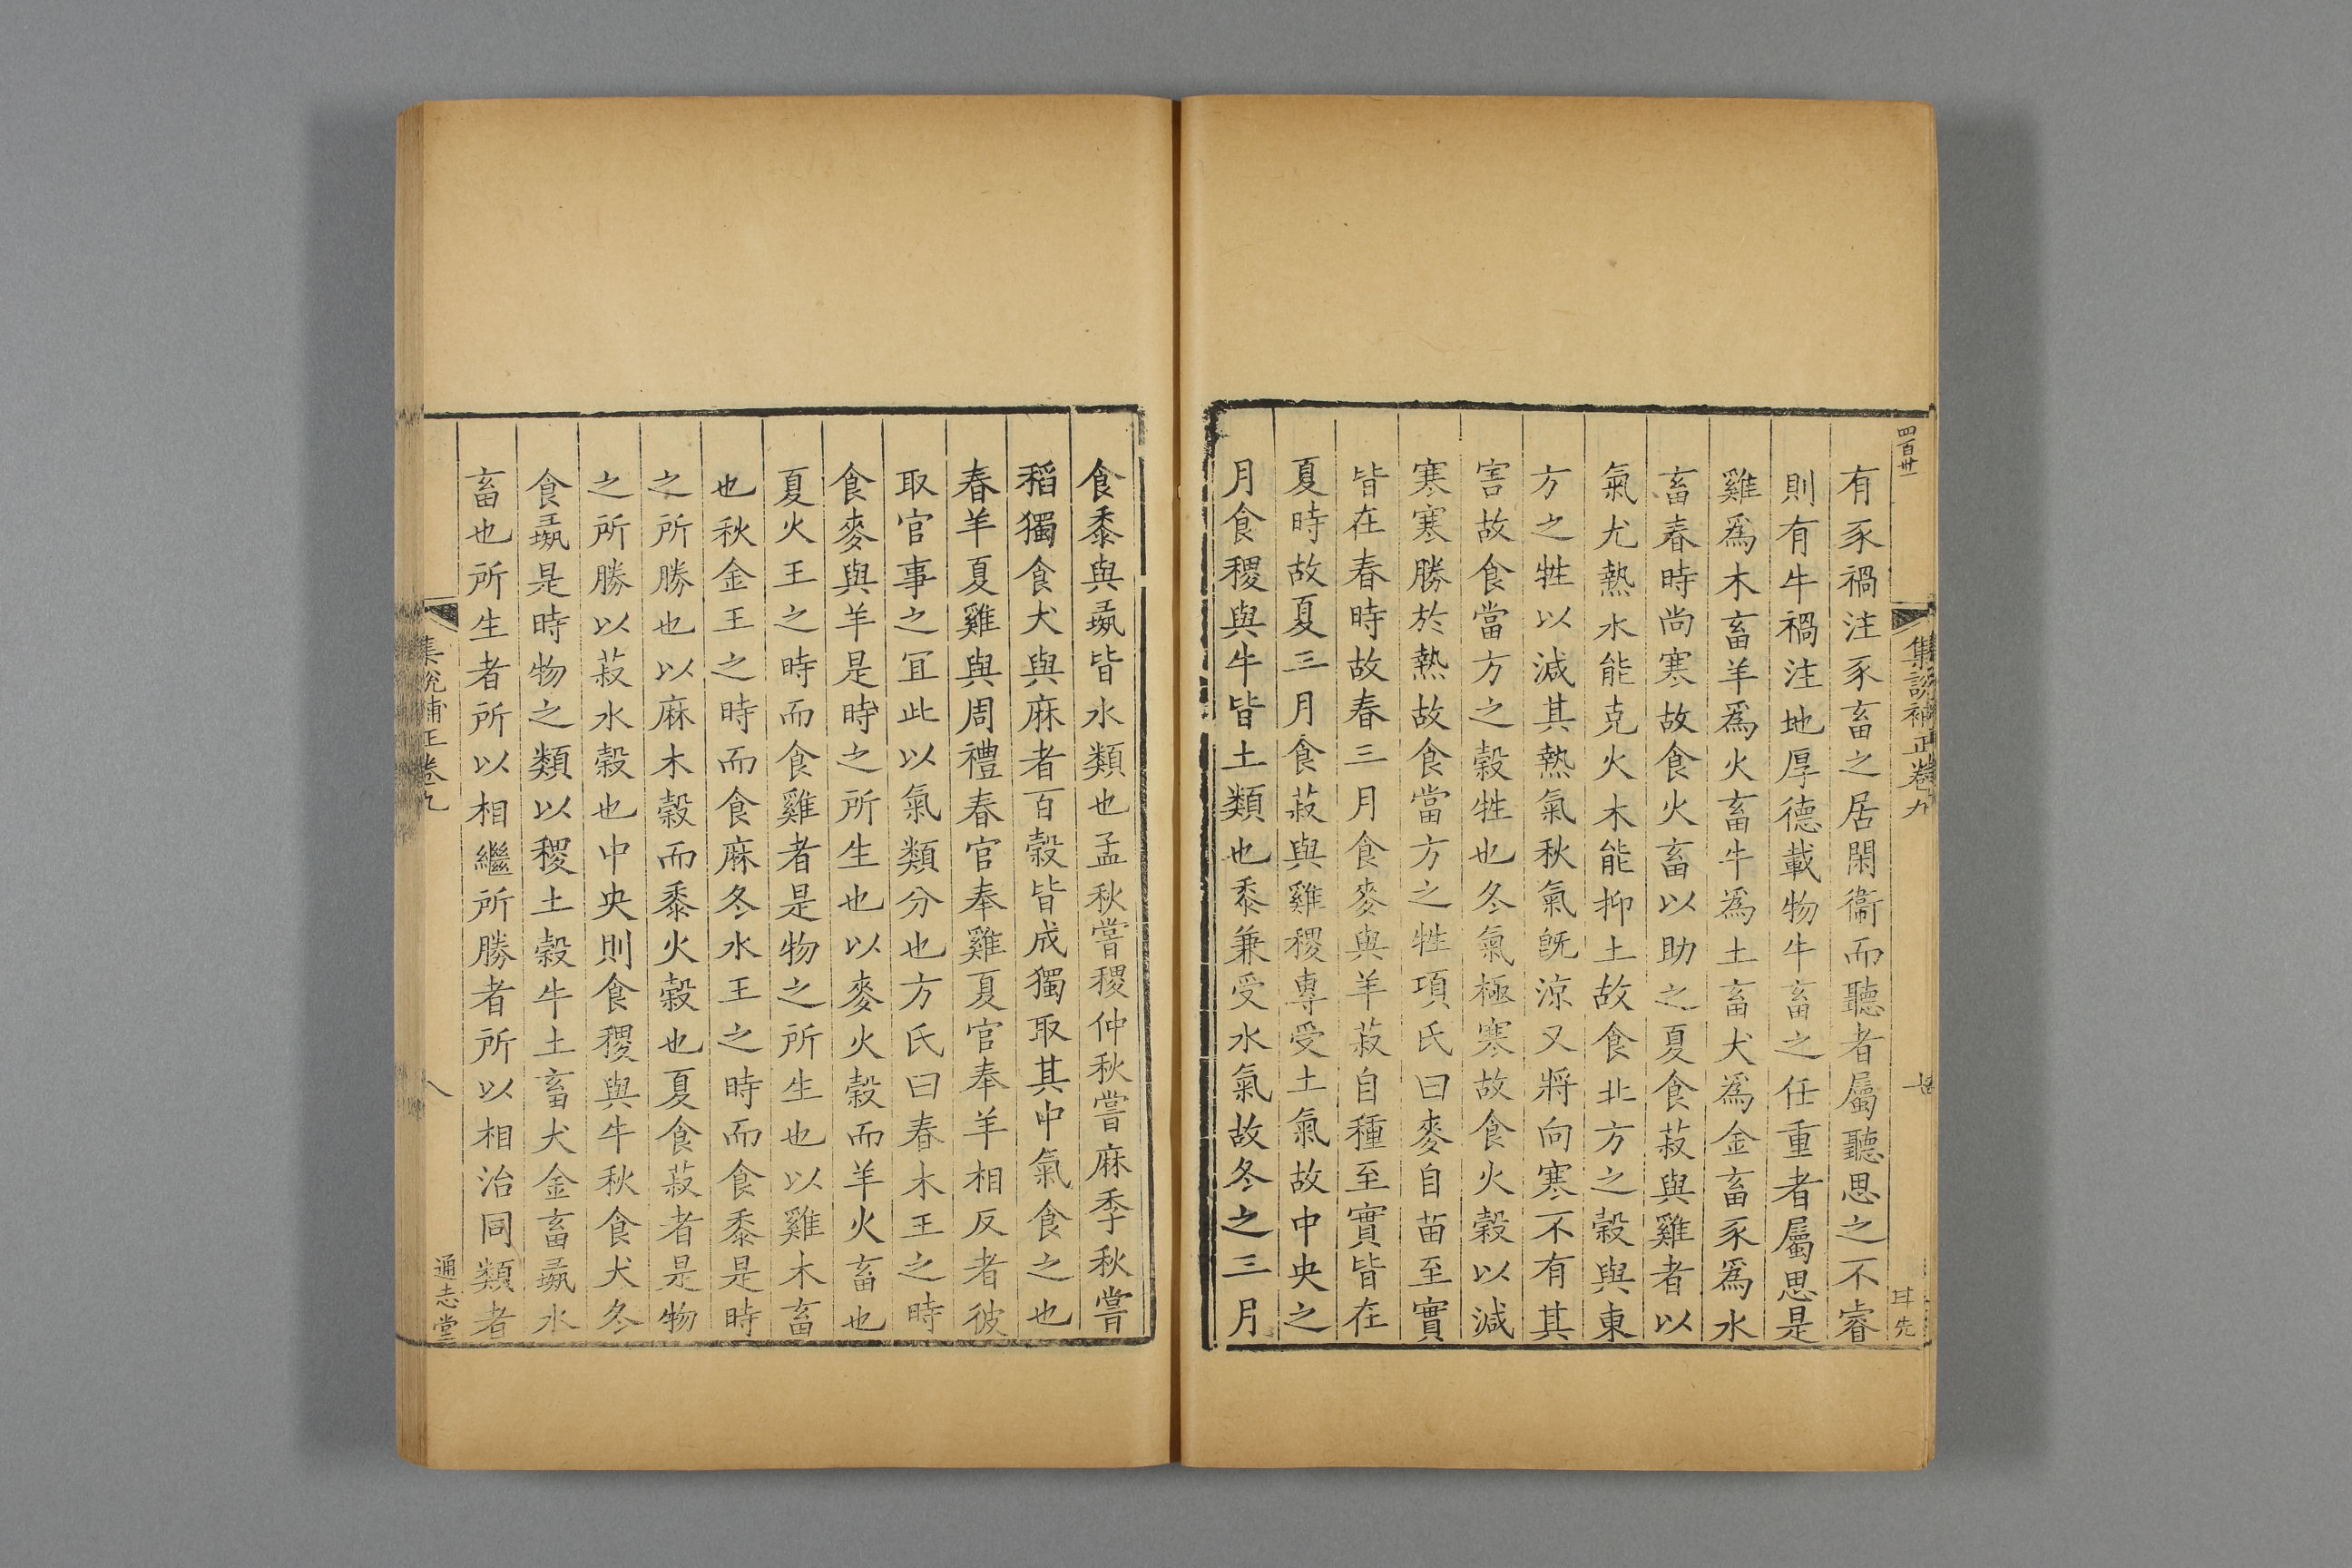 四百卅一
集說補正卷九
有豕禍注豕畜之居閑衞而聽者屬聽思之不睿
則有牛禍注地厚德載物牛畜之任重者屬思是
雞爲木畜羊爲火畜牛爲土畜犬爲金畜豕爲水
畜春時尚寒故食火畜以助之夏食菽與雞者以
氣尤熱水能克火木能抑土故食北方之穀與東
方之牲以減其熱氣秋氣旣涼又將向寒不有其
害故食當方之穀牲也冬氣極寒故食火穀以減
寒寒勝於熱故食當方之牲項氏曰麥自苗至實
皆在春時故春三月食麥與羊菽自種至實皆在
夏時故夏三月食菽與雞稷專受土氣故中央之
月食稷與牛皆土類也黍兼受水氣故冬之三月
食黍與彘皆水類也孟秋嘗稷仲秋嘗麻季秋嘗
稻獨食犬與麻者百穀皆成獨取其中氣食之也
春羊夏雞與周禮春官奉雞夏官奉羊相反者彼
取官事之冝此以氣類分也方氏曰春木王之時
食麥與羊是時之所生也以麥火穀而羊火畜也
夏火王之時而食雞者是物之所生也以雞木畜
也秋金王之時而食麻冬水王之時而食黍是時
之所勝也以麻木穀而黍火穀也夏食菽者是物
之所勝以菽水穀也中央則食稷與牛秋食犬冬
食彘是時物之類以稷土穀牛土畜犬金畜彘水
畜也所生者所以相繼所勝者所以相治同類者
集說補正卷九
八
通志堂